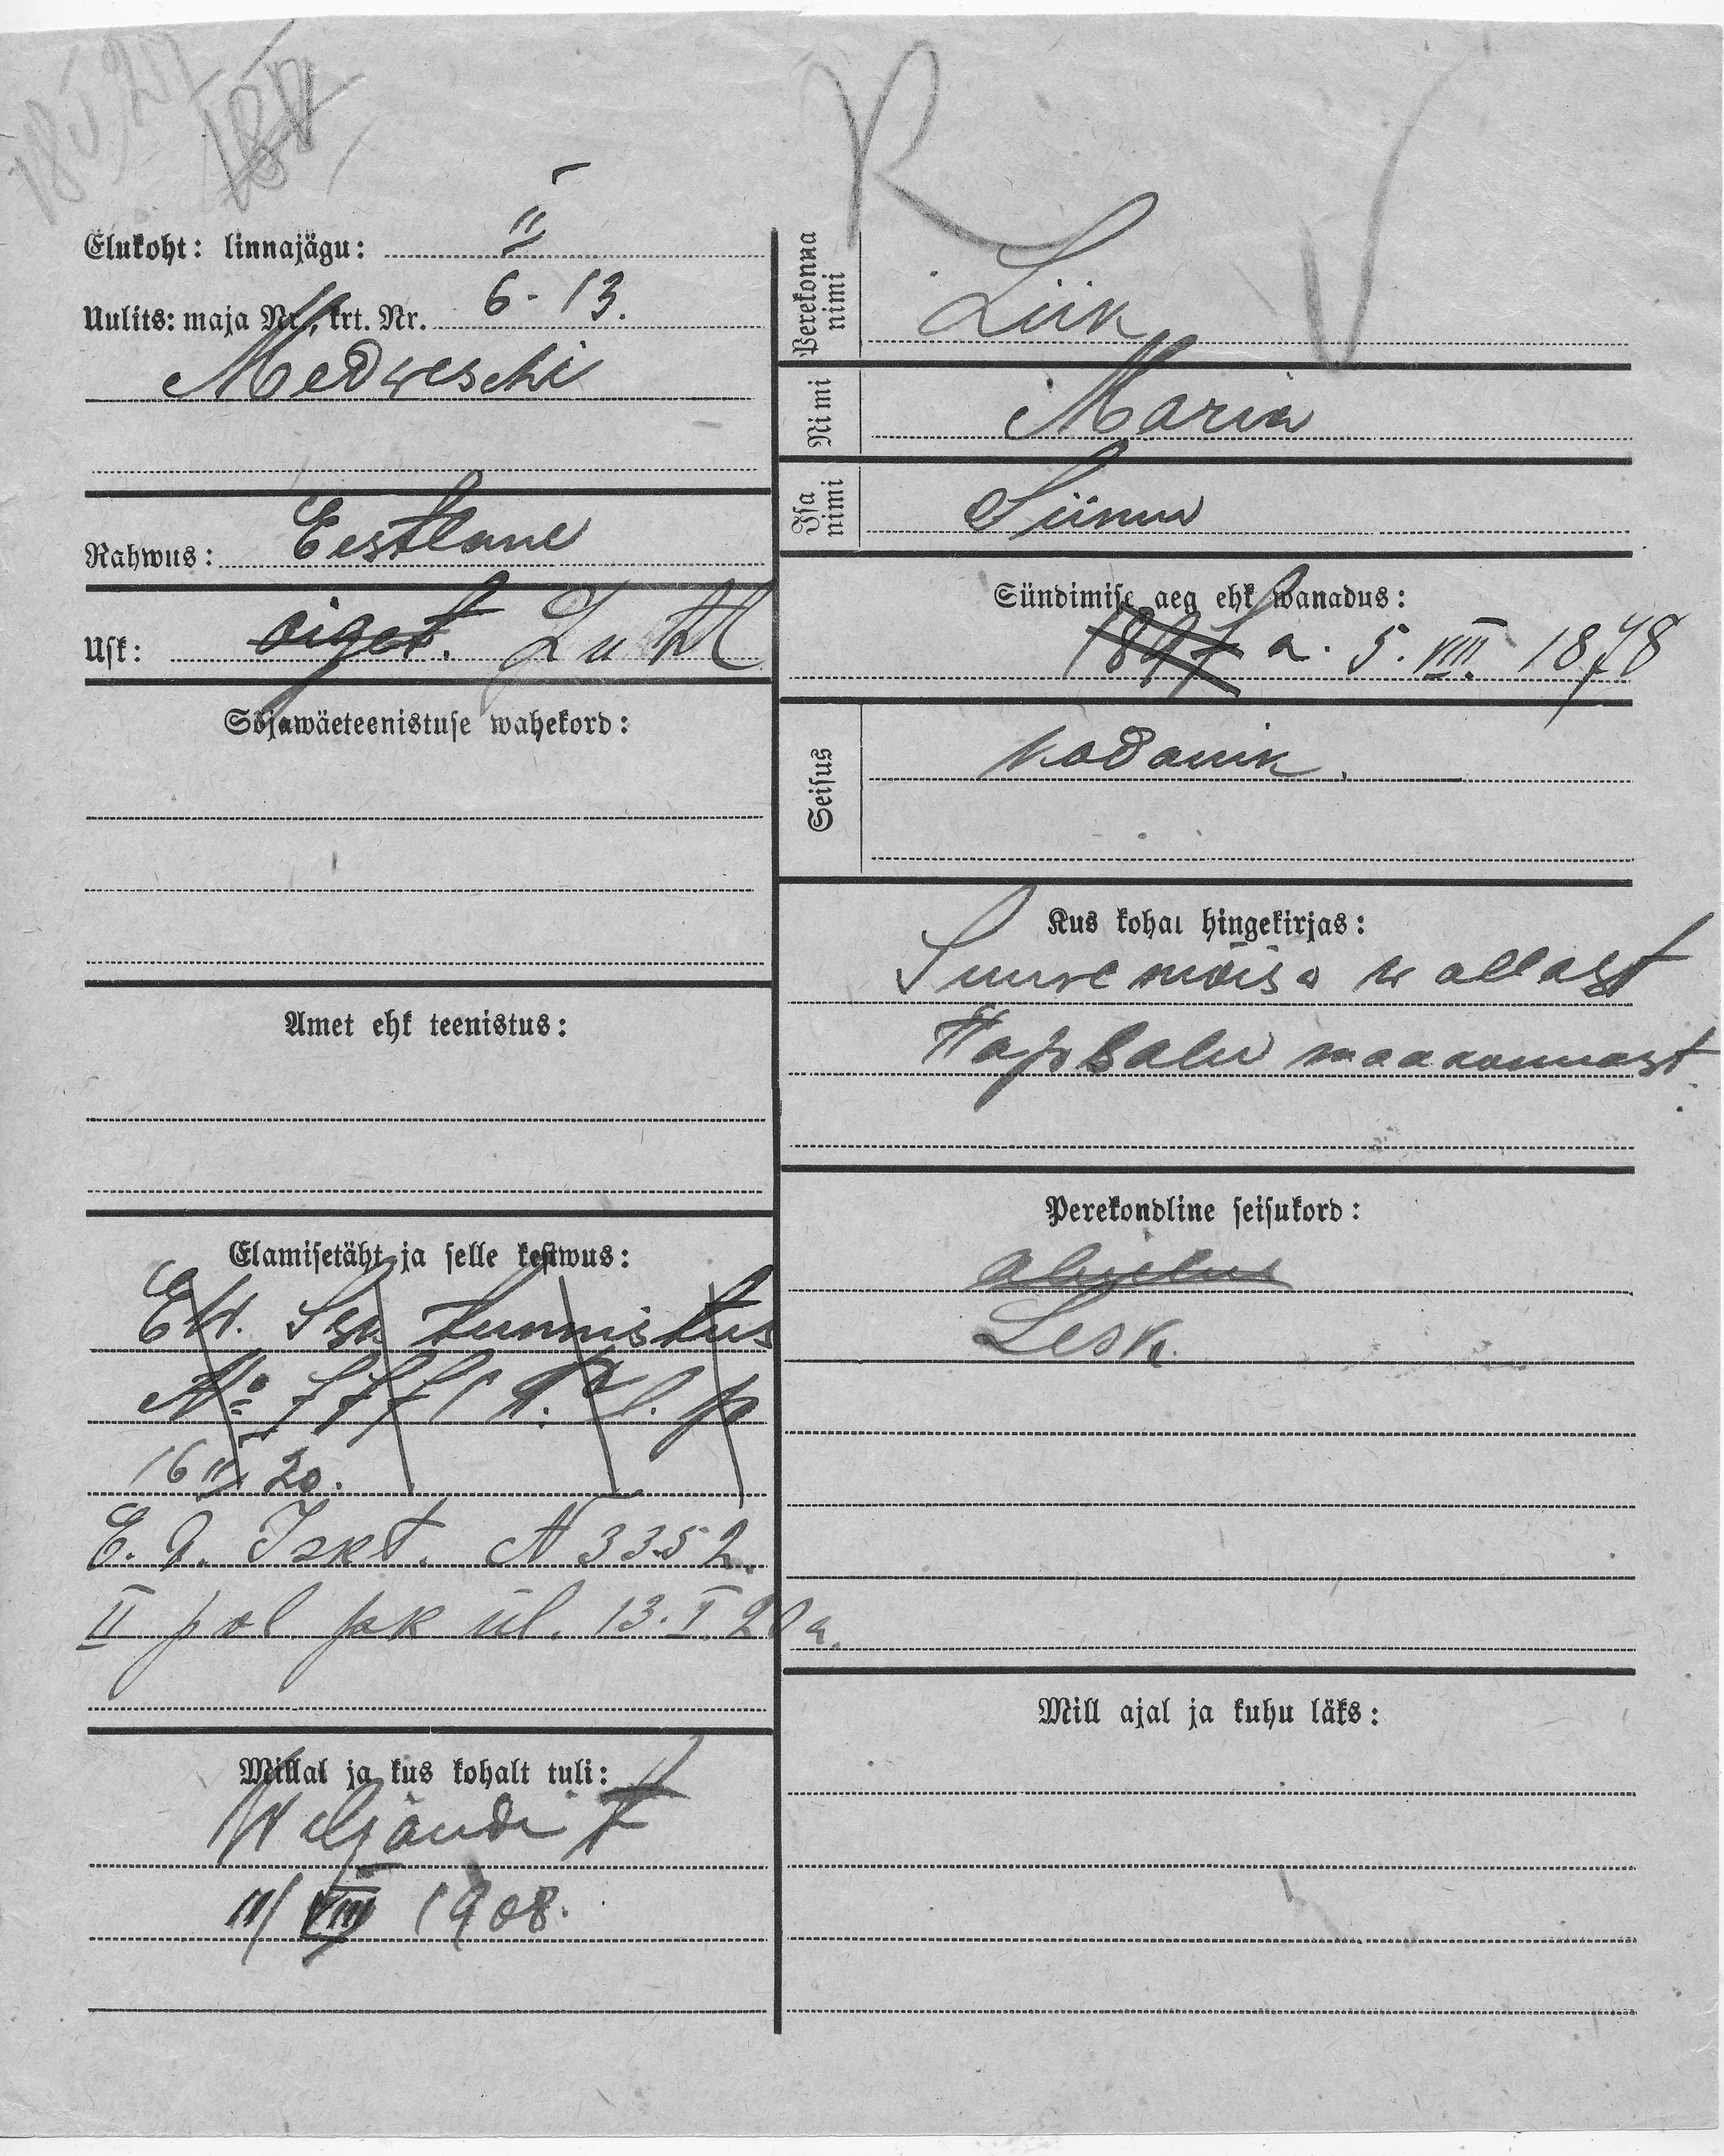 R V
Elukoht: linnajägu: II
Uulits: maja Nr., krt. Nr. 6-13.
Medweschi
Rahwus: Eestlane
Usk: õiget. Luth
Sõjawäeteenistuse wahekord:
Amet ehk teenistus:
Elamisetäht ja selle kestwus:
tunnistus
No
16 II 20.
E. W. Iskt. N 3352
II pol. jsk ül. 13.I.20 a.
Millal ja kus kohalt tuli:
Wiljandi
VIII 1908.
Perekonna nimi Liik
Nimi Maria
Isa nimi
Sündimise aeg ehk wanadus:
1897 a. 5. VIII. 1878
Seisus kodanik.
Kus kohal hingekirjas:
Suuremõisa wallast
Hapsalu maakonnast
Perekondline seisukord:
abielus
Lesk.
Mill ajal ja kuhu läks: